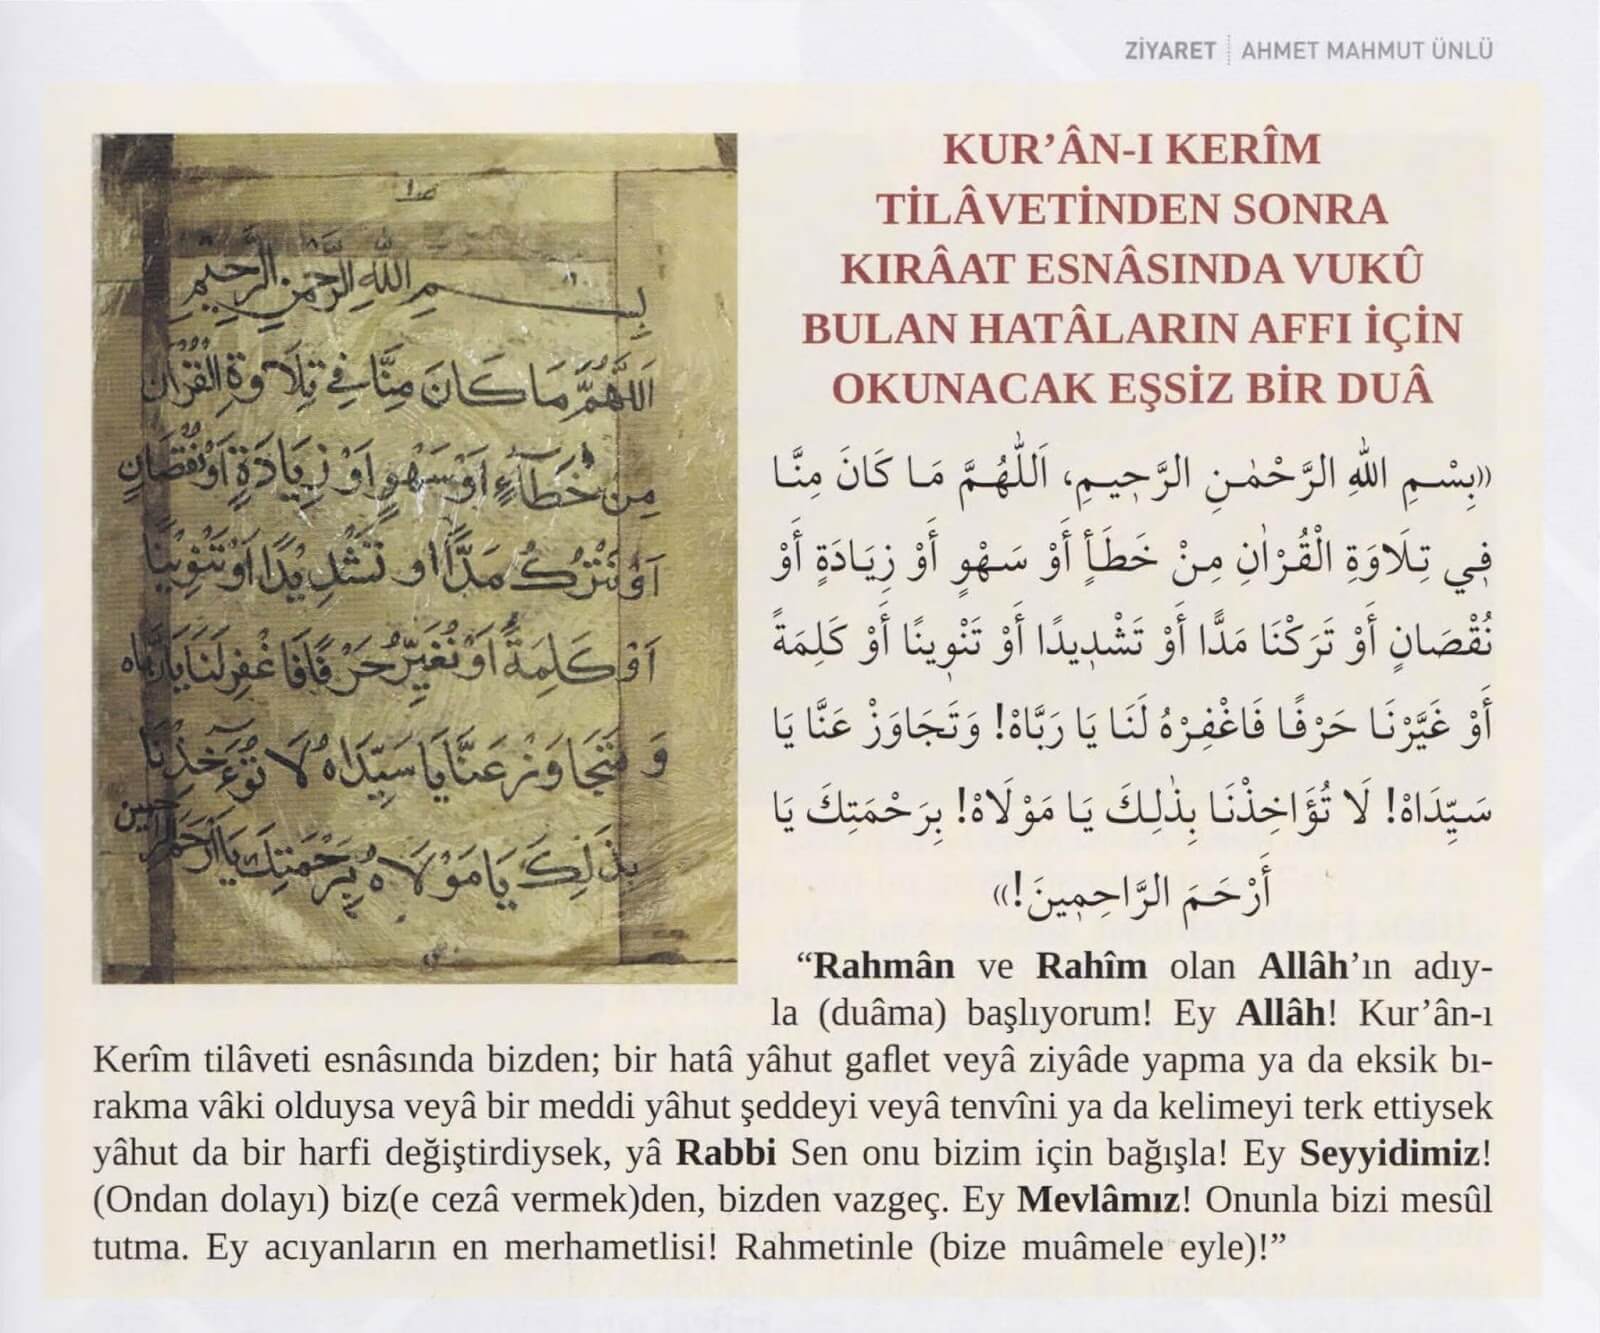 ZİYARET | AHMET MAHMUT ÜNLÜ
بسم الله الرحمن الرحيم
اَللّٰهُمَّ مَا كَانَ مِنَّا فِي تِلَاوَةِ الْقُرْاٰنِ
مِنْ خَطَآءٍ اَوْ سَهْوٍ اَوْ زِيَادَةٍ اَوْ نُقْصَانٍ
اَوْ نَتْرُكُ مَدًّا اَو تَشْدِيْدًا اَوْ تَنْوِيْنًا
اَوْ كَلِمَةً اَوْ نُغَيِّرُ حَرْفًا فَاغْفِرْ لَنَا يَا رَبَّاه
وَ تَجَاوَزْ عَنَّا يَا سَيِّدَاهُ لَا تُؤَخِذْنَا
بِذٰلِكَ يَا مَوْلَاهُ بِرَحْمَتِكَ يَا اَرْحَمَ الراحمين
KUR’ÂN-I KERÎM
TİLÂVETİNDEN SONRA
KIRÂAT ESNÂSINDA VUKÛ
BULAN HATÂLARIN AFFI İÇİN
OKUNACAK EŞSİZ BİR DUÂ
«بِسْمِ اللّٰهِ الرَّحْمٰنِ الرَّحٖيمِ، اَللّٰهُمَّ مَا كَانَ مِنَّا
فٖي تِلَاوَةِ الْقُرْاٰنِ مِنْ خَطَأٍ أَوْ سَهْوٍ أَوْ زِيَادَةٍ أَوْ
نُقْصَانٍ أَوْ تَرَكْنَا مَدًّا أَوْ تَشْدٖيدًا أَوْ تَنْوٖينًا أَوْ كَلِمَةً
أَوْ غَيَّرْنَا حَرْفًا فَاغْفِرْهُ لَنَا يَا رَبَّاهْ! وَتَجَاوَزْ عَنَّا يَا
سَيِّدَاهْ! لَا تُؤَاخِذْنَا بِذٰلِكَ يَا مَوْلَاهْ! بِرَحْمَتِكَ يَا
أَرْحَمَ الرَّاحِمٖينَ!»
“Rahmân ve Rahîm olan Allâh’ın adıy-
la (duâma) başlıyorum! Ey Allâh! Kur’ân-ı
Kerîm tilâveti esnâsında bizden; bir hatâ yâhut gaflet veyâ ziyâde yapma ya da eksik bı-
rakma vâki olduysa veyâ bir meddi yâhut şeddeyi veyâ tenvîni ya da kelimeyi terk ettiysek
yâhut da bir harfi değiştirdiysek, yâ Rabbi Sen onu bizim için bağışla! Ey Seyyidimiz!
(Ondan dolayı) biz(e cezâ vermek)den, bizden vazgeç. Ey Mevlâmız! Onunla bizi mesûl
tutma. Ey acıyanların en merhametlisi! Rahmetinle (bize muâmele eyle)!”